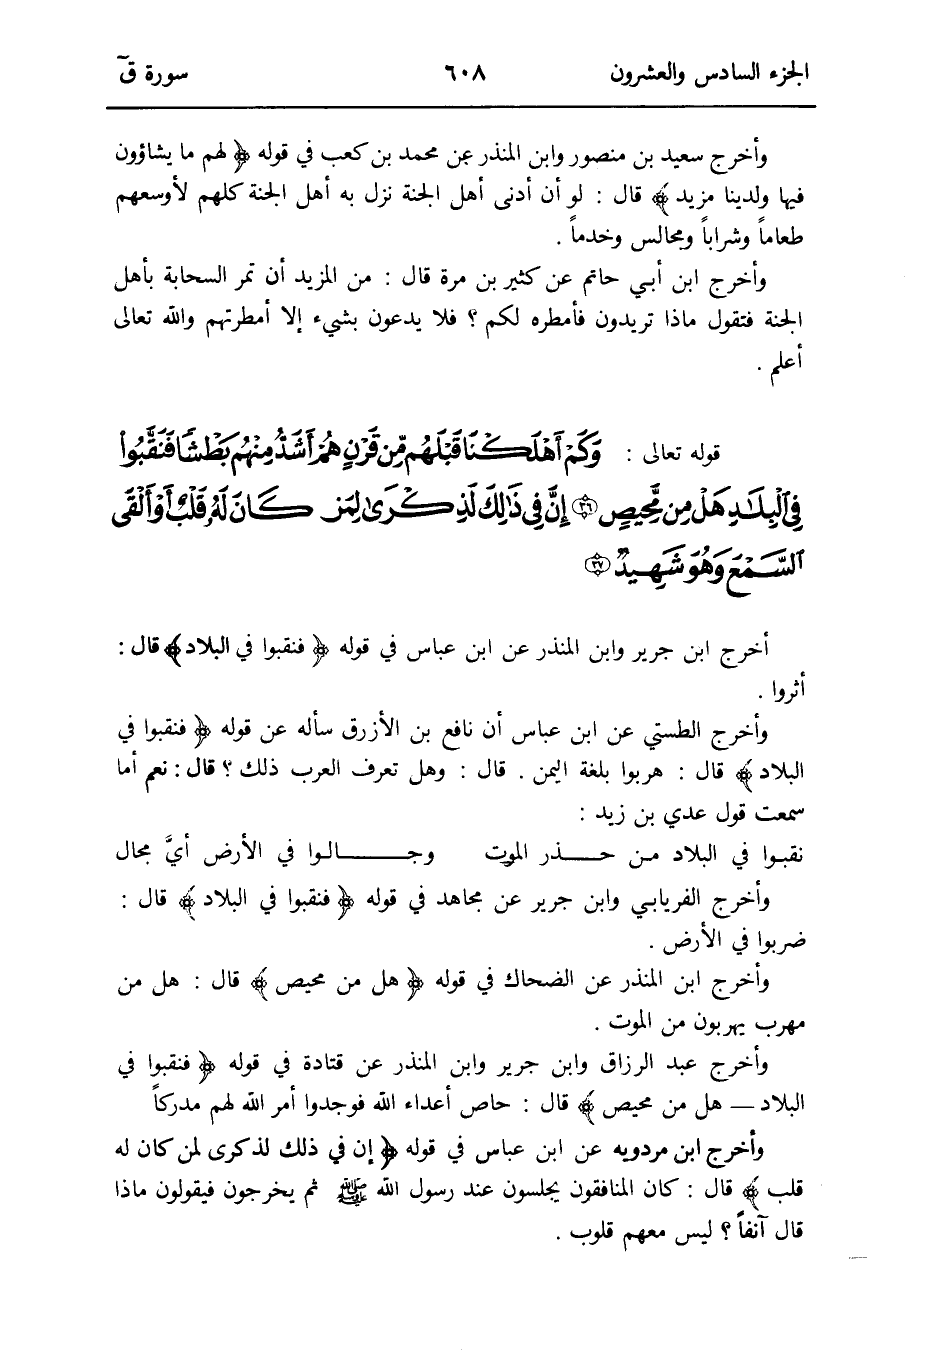 الجزء السادس والعشرون ٦٠٨ سورة قۤ
وأخرج سعيد بن منصور وابن المنذر عن محمد بن كعب في قوله ﴿ لهم ما يشاؤون
فيها ولدينا مزيد ﴾ قال : لو أن أدنى أهل الجنة نزل به أهل الجنة كلهم لأوسعهم
طعاماً وشراباً ومجالس وخدماً .
وأخرج ابن أبي حاتم عن كثير بن مرة قال : من المزيد أن تمر السحابة بأهل
الجنة فتقول ماذا تريدون فأمطره لكم ؟ فلا يدعون بشيء إلا أمطرتهم والله تعالى
أعلم .
قوله تعالى : وَكَمْ أَهْلَكْنَا قَبْلَهُم مِّن قَرْنٍ هُمْ أَشَدُّ مِنْهُم بَطْشًا فَنَقَّبُوا۟
فِى ٱلْبِلَٰدِ هَلْ مِن مَّحِيصٍ ۝٣٦ إِنَّ فِى ذَٰلِكَ لَذِكْرَىٰ لِمَن كَانَ لَهُۥ قَلْبٌ أَوْ أَلْقَى
ٱلسَّمْعَ وَهُوَ شَهِيدٌ ۝٣٧
أخرج ابن جرير وابن المنذر عن ابن عباس في قوله ﴿ فنقبوا في البلاد ﴾ قال :
أثروا .
وأخرج الطستي عن ابن عباس أن نافع بن الأزرق سأله عن قوله ﴿ فنقبوا في
البلاد ﴾ قال : هربوا بلغة اليمن . قال : وهل تعرف العرب ذلك ؟ قال : نعم أما
سمعت قول عدي بن زيد :
نقبوا في البلاد من حـــذر الموت وجـــــالوا في الأرض أيَّ مجال
وأخرج الفريابي وابن جرير عن مجاهد في قوله ﴿ فنقبوا في البلاد ﴾ قال :
ضربوا في الأرض .
وأخرج ابن المنذر عن الضحاك في قوله ﴿ هل من محيص ﴾ قال : هل من
مهرب يهربون من الموت .
وأخرج عبد الرزاق وابن جرير وابن المنذر عن قتادة في قوله ﴿ فنقبوا في
البلاد — هل من محيص ﴾ قال : حاص أعداء الله فوجدوا أمر الله لهم مدركاً
وأخرج ابن مردويه عن ابن عباس في قوله ﴿ إن في ذلك لذكرى لمن كان له
قلب ﴾ قال : كان المنافقون يجلسون عند رسول الله ﷺ ثم يخرجون فيقولون ماذا
قال آنفاً ؟ ليس معهم قلوب .